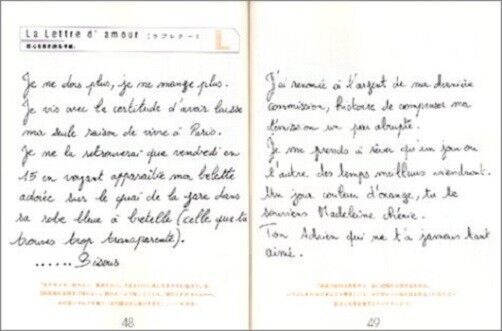 La Lettre d'amour [ラブレター]
L
Je ne dors plus, je ne mange plus.
Je vis avec la certitude d'avoir laissé
ma seule raison de vivre à Paris.
Je ne la retrouverai que vendredi en
15 en voyant apparaître ma belette
adorée sur le quai de la gare dans
sa robe bleue à bretelle (celle que tu
trouves trop transparente).
...... Bisous
48
J'ai renoncé à l'argent de ma dernière
commission, histoire de compenser ma
démission un peu abrupte.
Je me prends à rêver qu'un jour ou
l'autre des temps meilleurs viendront.
Un jour couleur d'orange, tu te
souviens Madeleine chérie.
Ton Adrien qui ne t'a jamais tant
aimé.
49